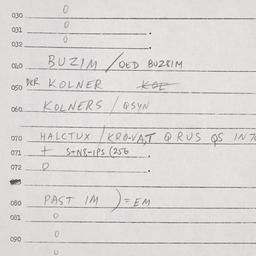 030 0
031 0 .
032 0 .
040 BUZIM / QED BUZBIM
050 DER KOLNER
060 KOLNERS / QSYN
070 HALCTUX / KROVAT QRUS QS IN
071 + S+N8-IPS (256 .
072 0 .
080 PAST IM ) = EM
081 0
090 0
0